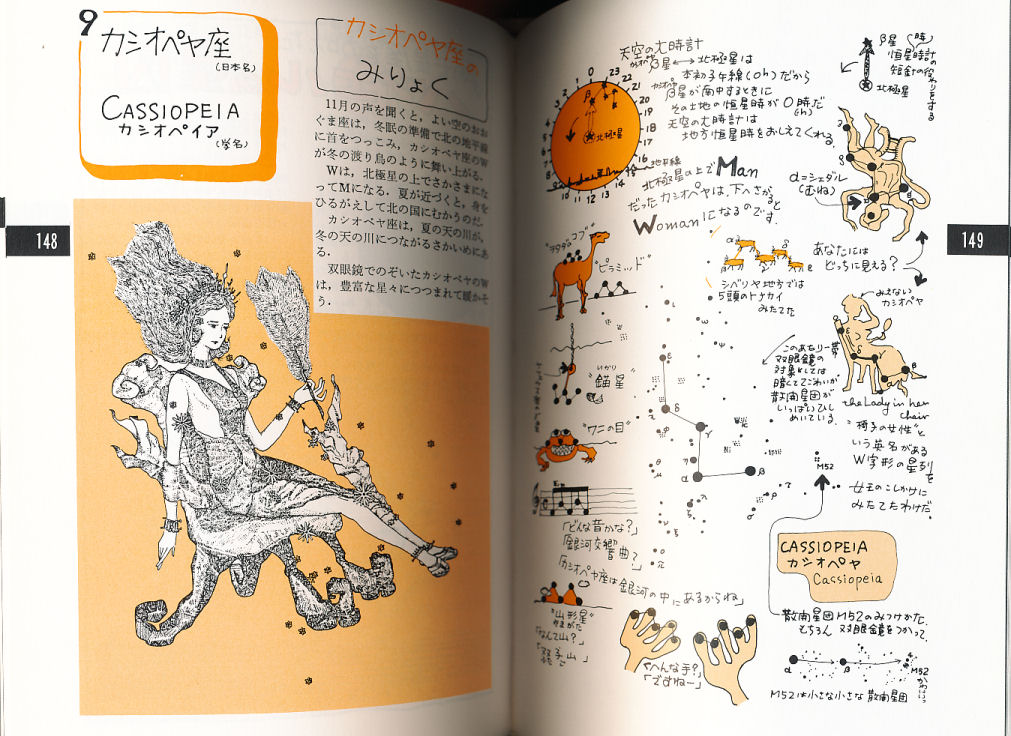 9
カシオペヤ座
(日本名)
CASSIOPEIA
カシオペイア
(学名)
カシオペヤ座の
みりょく
11月の声を聞くと，よい空のおお
ぐま座は，冬眠の準備で北の地平線
に首をつっこみ，カシオペヤ座のW
が冬の渡り鳥のように舞い上がる．
Wは，北極星の上でさかさまにな
ってMになる．夏が近づくと，身を
ひるがえして北の国にむかうのだ．
カシオペヤ座は，夏の天の川が，
冬の天の川につながるさかいめにあ
る．
双眼鏡でのぞいたカシオペヤのW
は，豊富な星々につつまれて暖かそ
う．
148
天空の大時計
カシオペヤ
β星⟷北極星は
本初子午線(0h)だから
カシオペヤ
β星が南中するときに
その土地の恒星時が0時だ
(0h)
天空の大時計は
地方恒星時をおしえてくれる．
0
23
22
21
20
19
18
17
16
15
14
13
12
11
10
9
8
7
6
5
4
3
2
1
β
北極星
地平線
β星(時)
恒星時計の
短針の役わりをする
北極星
北極星の上でMan
だったカシオペヤは，下へさがると
Womanになるのです．
α=シェダル
(むね)
149
あなたには
どっちに見える？
"ヲタクダコブ"
"ピラミッド"
シベリヤ地方では
5頭のトナカイ
みたてた
みえない
カシオペヤ
このあたり一帯
双眼鏡の
対象としては
暗くてでごわいが
散開星団が
いっぱいひし
めいている．
the Lady in her
chair
"椅子の女性"と
いう英名がある
W字形の星列を
女王のこしかけに
みたてたわけだ．
いかり
"錨星"
"ワニの目"
ε
δ
γ
η
α
β
M52
「どんな音かな？」
「銀河交響
音曲？」
「カシオペヤ座は銀河の中にあるからね」
"山形星"
やまがた
「なんて山？」
「双子山」
「へんな手？」
「ですねー」
CASSIOPEIA
カシオペヤ
Cassiopeia
散開星団M52のみつけかた．
もちろん 双眼鏡をつかって．
α
β
M52
M52は小さな小さな散開星団